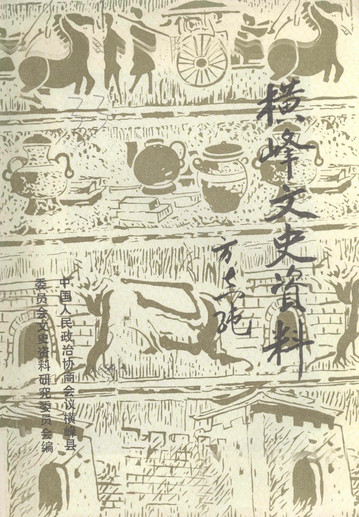 横峰文史资料
中国人民政治协商会议横峰县
委员会文史资料研究委员会编